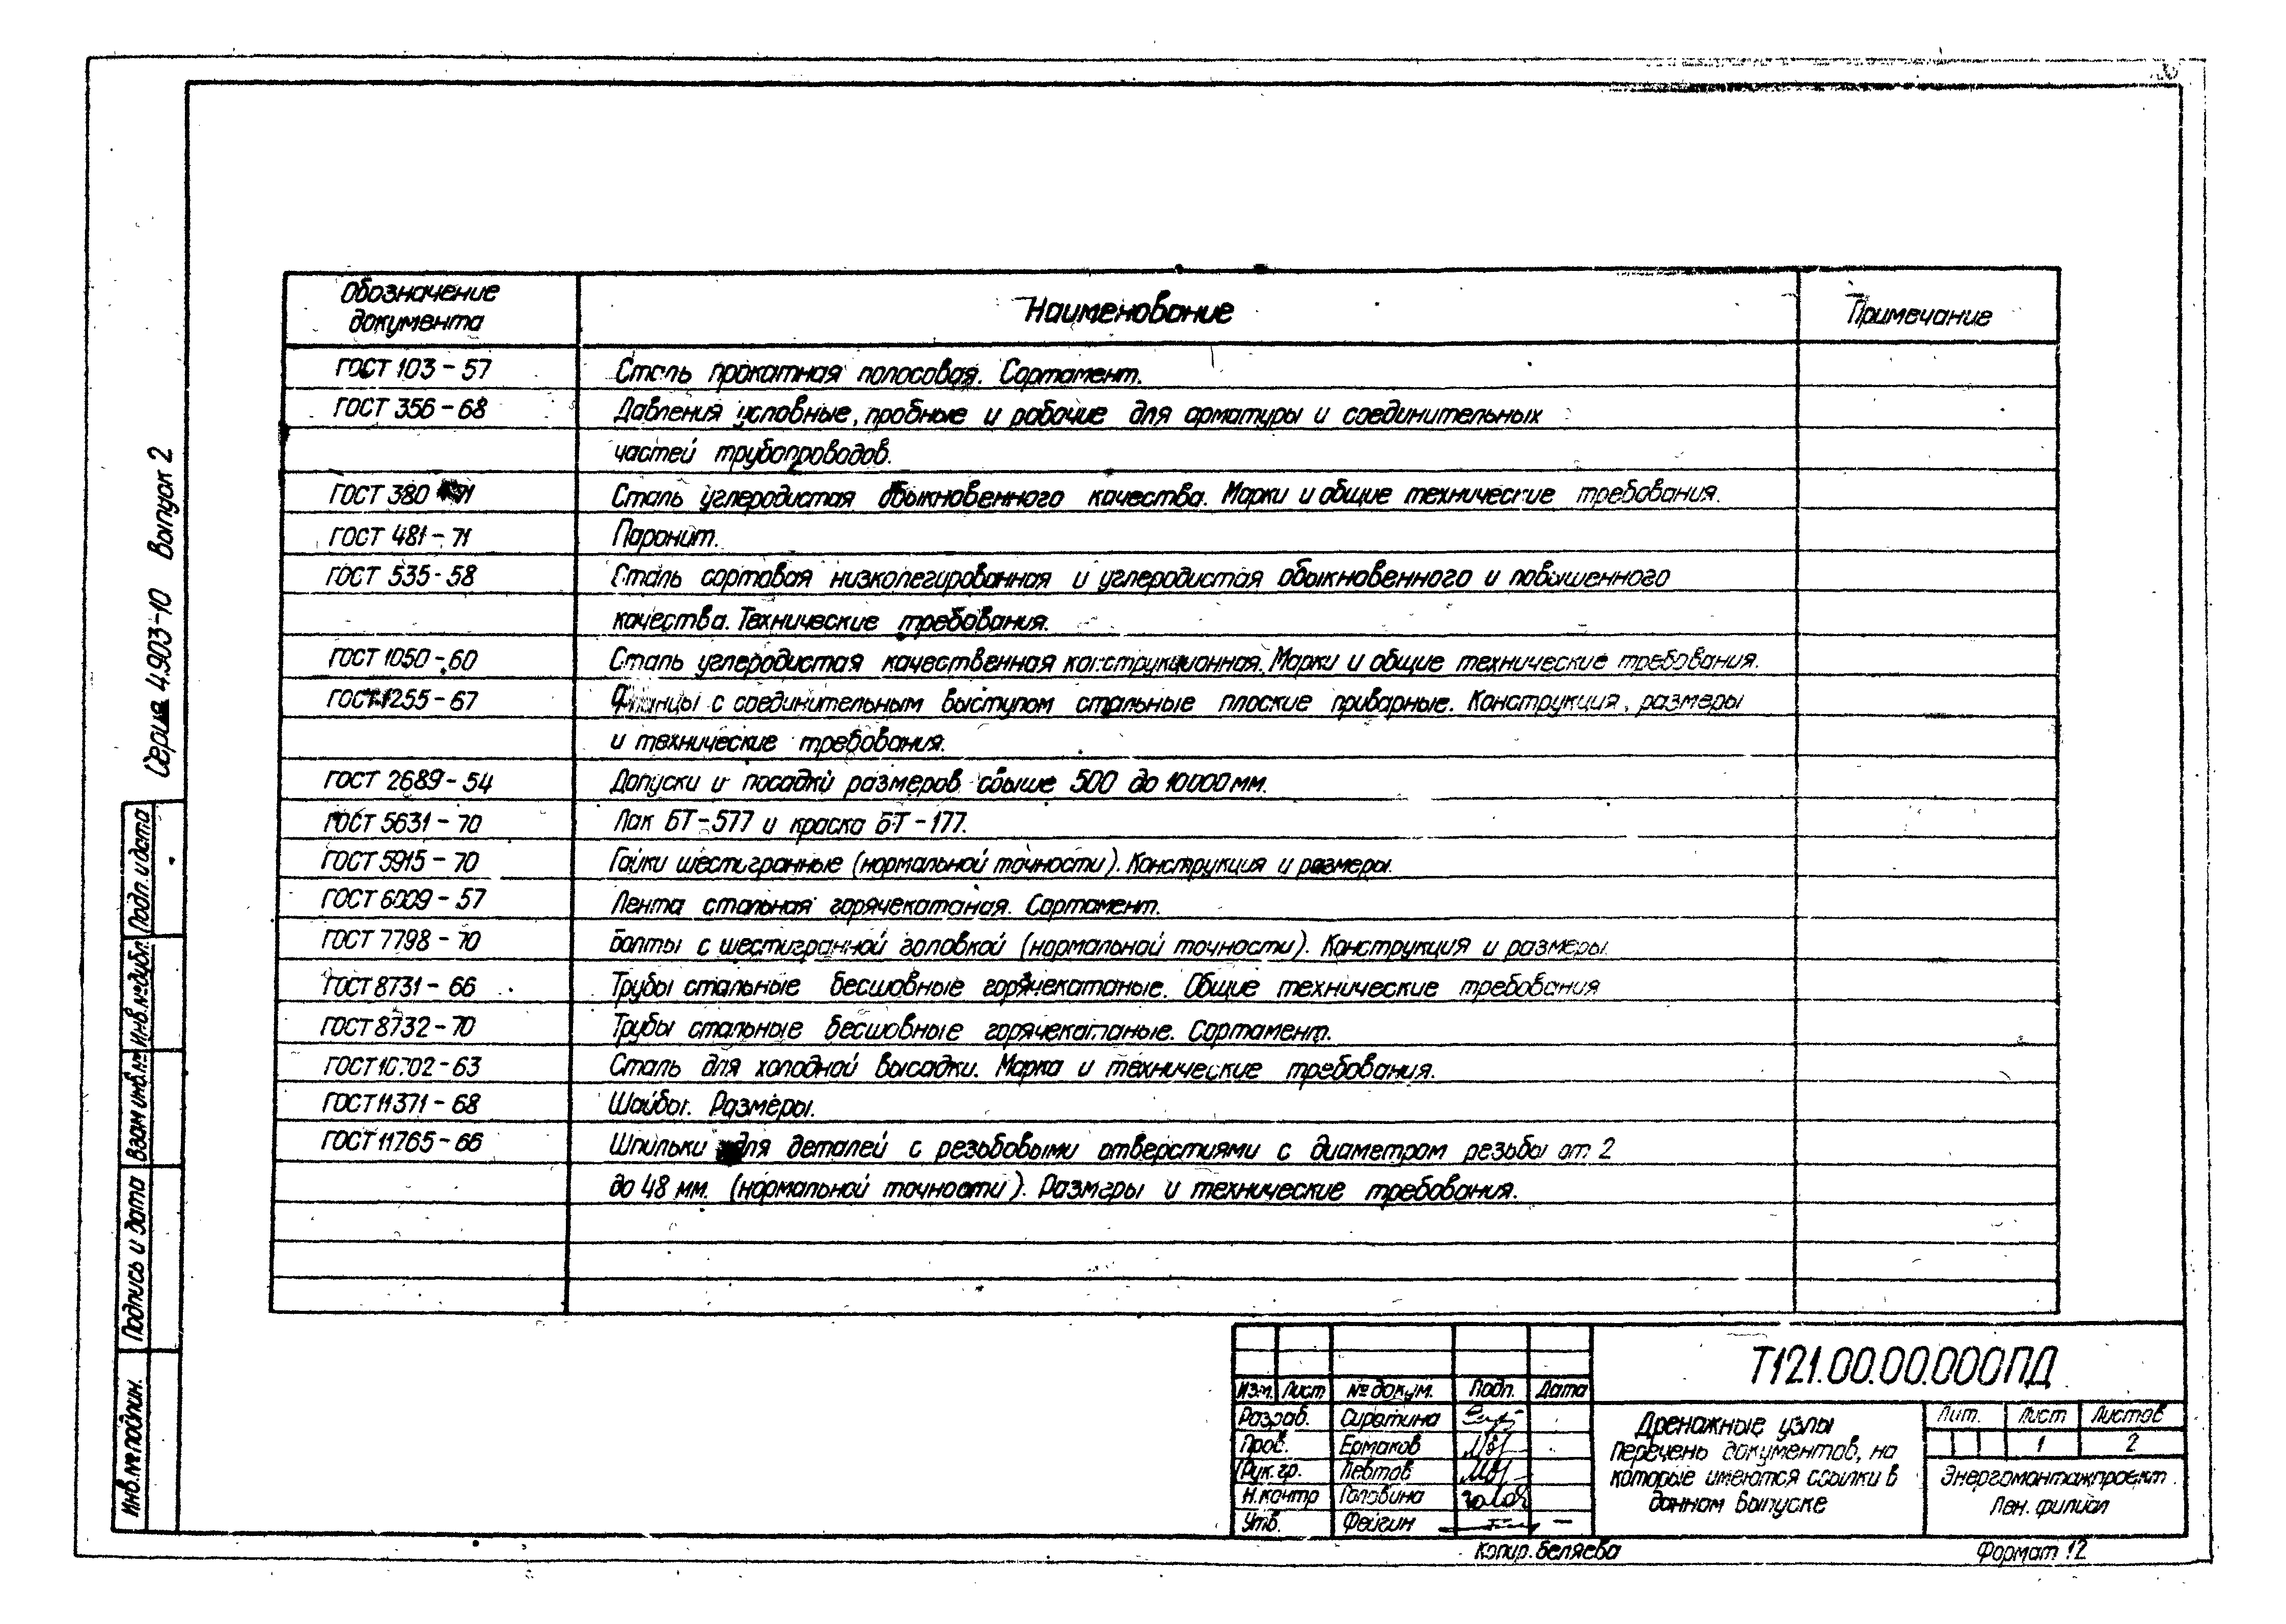 Обозначение документа Наименование Примечание
ГОСТ 103-57 Сталь прокатная полосовая. Сортамент.
ГОСТ 356-68 Давления условные, пробные и рабочие для арматуры и соединительных
частей трубопроводов.
ГОСТ 380-71 Сталь углеродистая обыкновенного качества. Марки и общие технические требования.
ГОСТ 481-71 Паронит.
ГОСТ 535-58 Сталь сортовая низколегированная и углеродистая обыкновенного и повышенного
качества. Технические требования.
ГОСТ 1050-60 Сталь углеродистая качественная конструкционная. Марки и общие технические требования.
ГОСТ 1255-67 Фланцы с соединительным выступом стальные плоские приварные. Конструкция, размеры
и технические требования.
ГОСТ 2689-54 Допуски и посадки размеров свыше 500 до 10000 мм.
ГОСТ 5631-70 Лак БТ-577 и краска БТ-177.
ГОСТ 5915-70 Гайки шестигранные (нормальной точности). Конструкция и размеры.
ГОСТ 6009-57 Лента стальная горячекатаная. Сортамент.
ГОСТ 7798-70 Болты с шестигранной головкой (нормальной точности). Конструкция и размеры.
ГОСТ 8731-66 Трубы стальные бесшовные горячекатаные. Общие технические требования
ГОСТ 8732-70 Трубы стальные бесшовные горячекатаные. Сортамент.
ГОСТ 10702-63 Сталь для холодной высадки. Марка и технические требования.
ГОСТ 11371-68 Шайбы. Размеры.
ГОСТ 11765-66 Шпильки для деталей с резьбовыми отверстиями с диаметром резьбы от 2
до 48 мм. (нормальной точности). Размеры и технические требования.
Серия 4.903-10 Выпуск 2
Подп. и дата
Инв. № дубл.
Взам инв. №
Подпись и дата
Инв. № подлин.
Т121.00.00.000ПД
Изм. Лист № докум. Подп. Дата
Разраб. Сиротина
Пров. Ермаков
Рук. гр. Левтов
Н.контр Головина
Утв. Фейгин
Дренажные узлы
Перечень документов, на
которые имеются ссылки в
данном выпуске
Лит. Лист Листов
1 2
Энергомонтажпроект
Лен. филиал
Копир. Беляева Формат 12